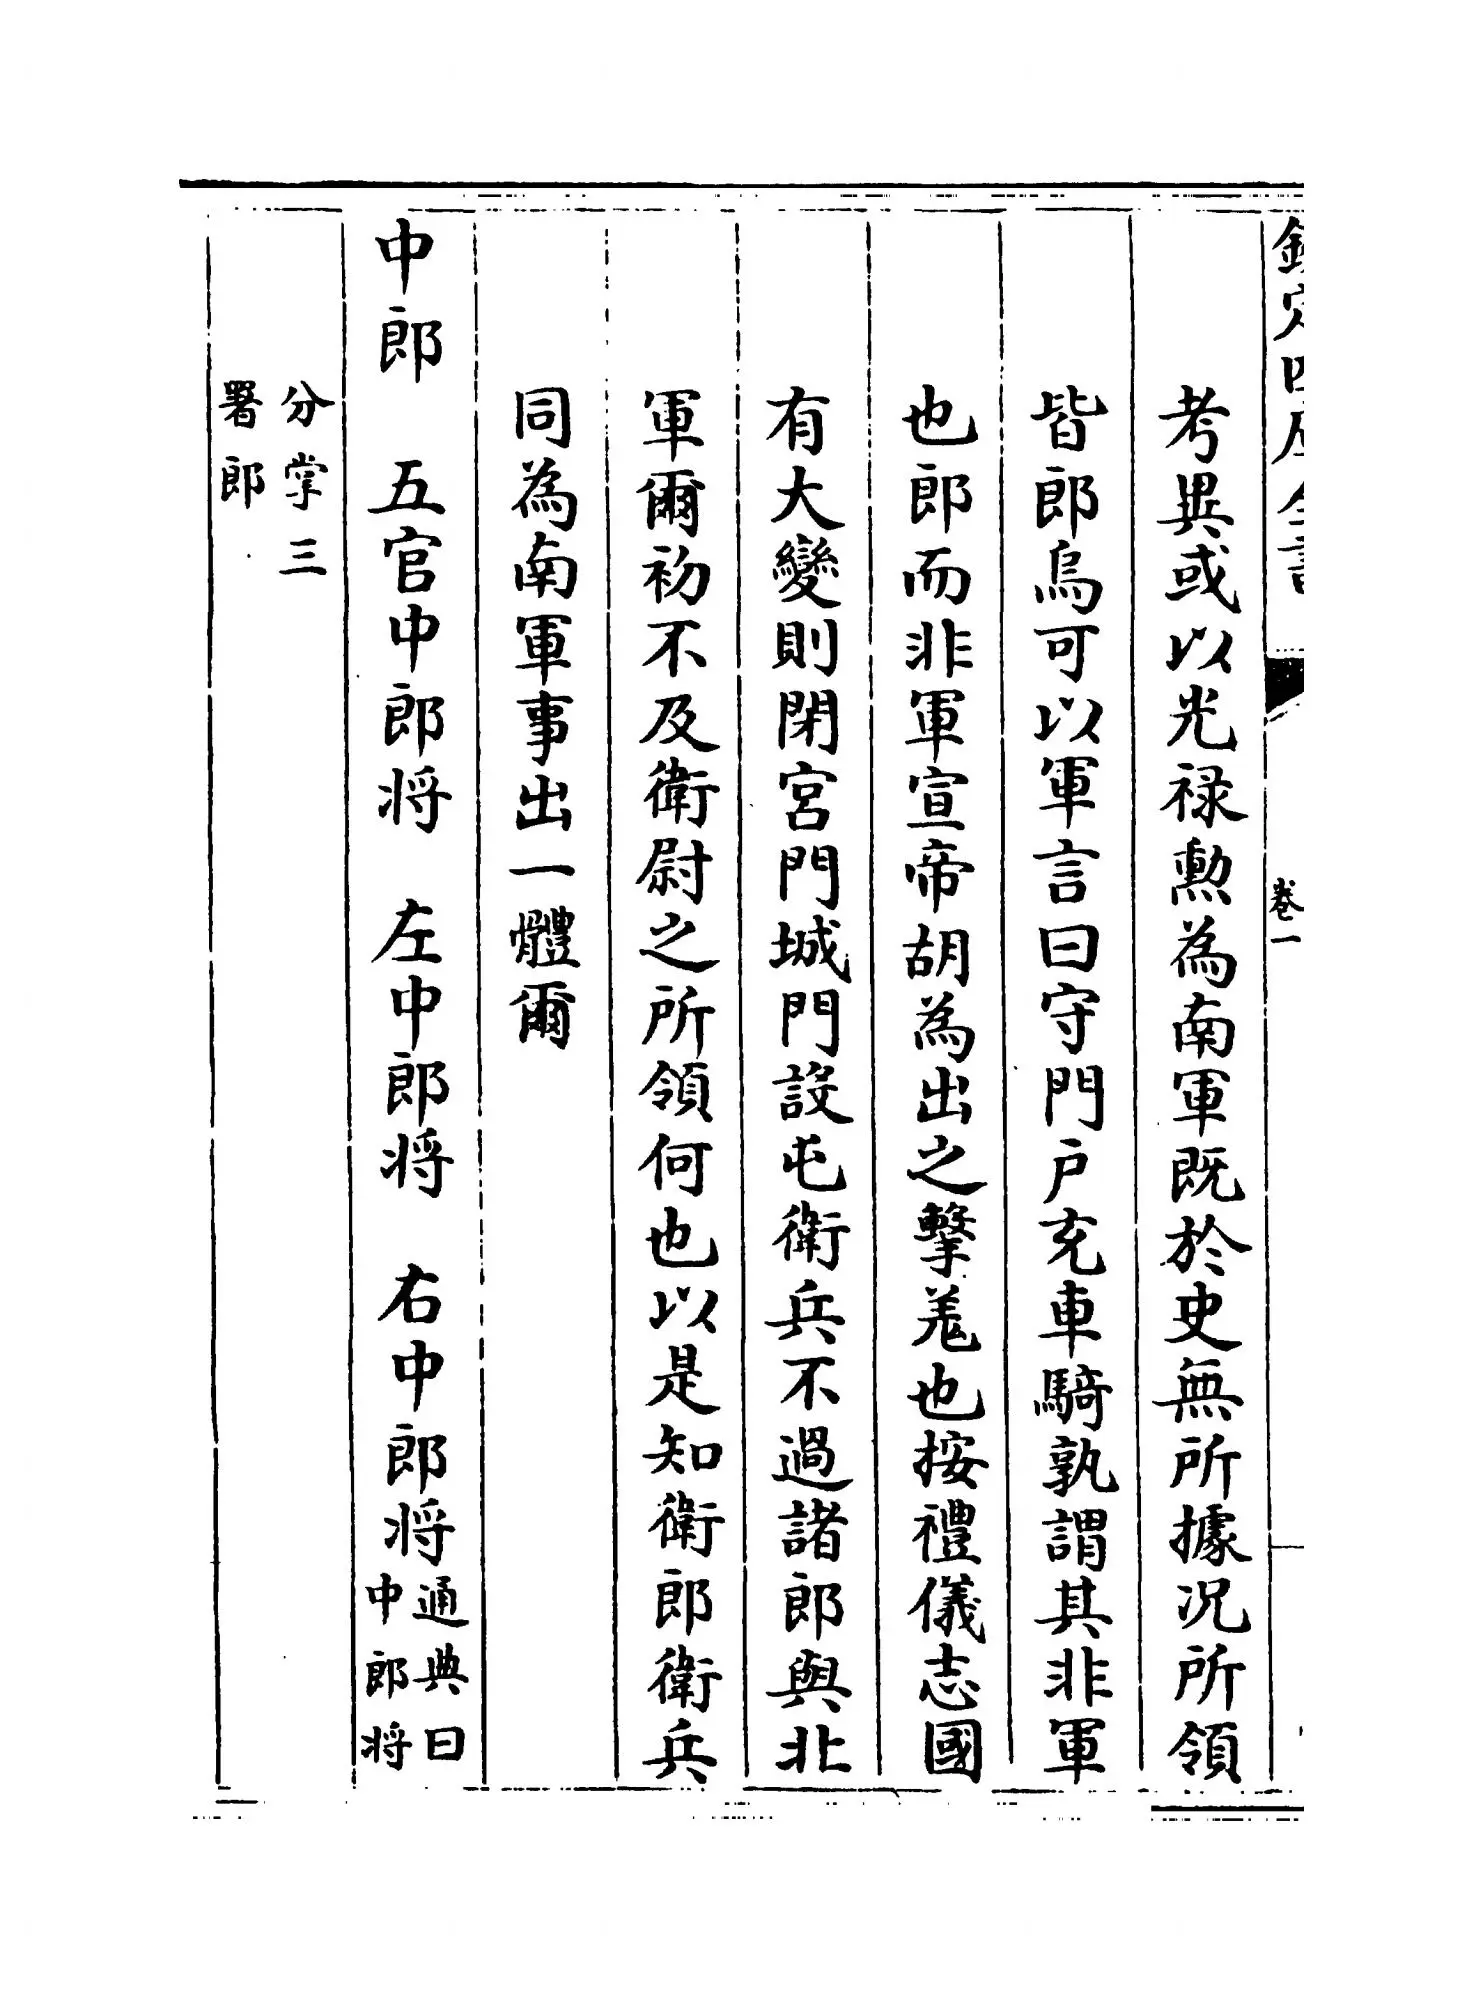 欽定四庫全書
卷一
考異或以光禄勲為南軍既於史無所據况所領
皆郎烏可以軍言曰守門戸充車騎孰謂其非軍
也郎而非軍宣帝胡為出之擊羌也按禮儀志國
有大變則閉宮門城門設屯衛兵不過諸郎與北
軍爾初不及衛尉之所領何也以是知衛郎衛兵
同為南軍事出一體爾
中郎 五官中郎將 左中郎將 右中郎將通典曰
中郎將
分掌三
署郎